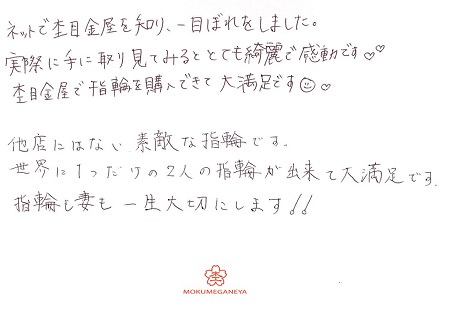 ネットで杢目金屋を知り、一目ぼれをしました。
実際に手に取り見てみるととても綺麗で感動です♡♡
杢目金屋で指輪を購入できて大満足です☺♡
他店にはない素敵な指輪です。
世界に1つだけの2人の指輪が出来て大満足です。
指輪も妻も一生大切にします!!
杢
MOKUMEGANEYA